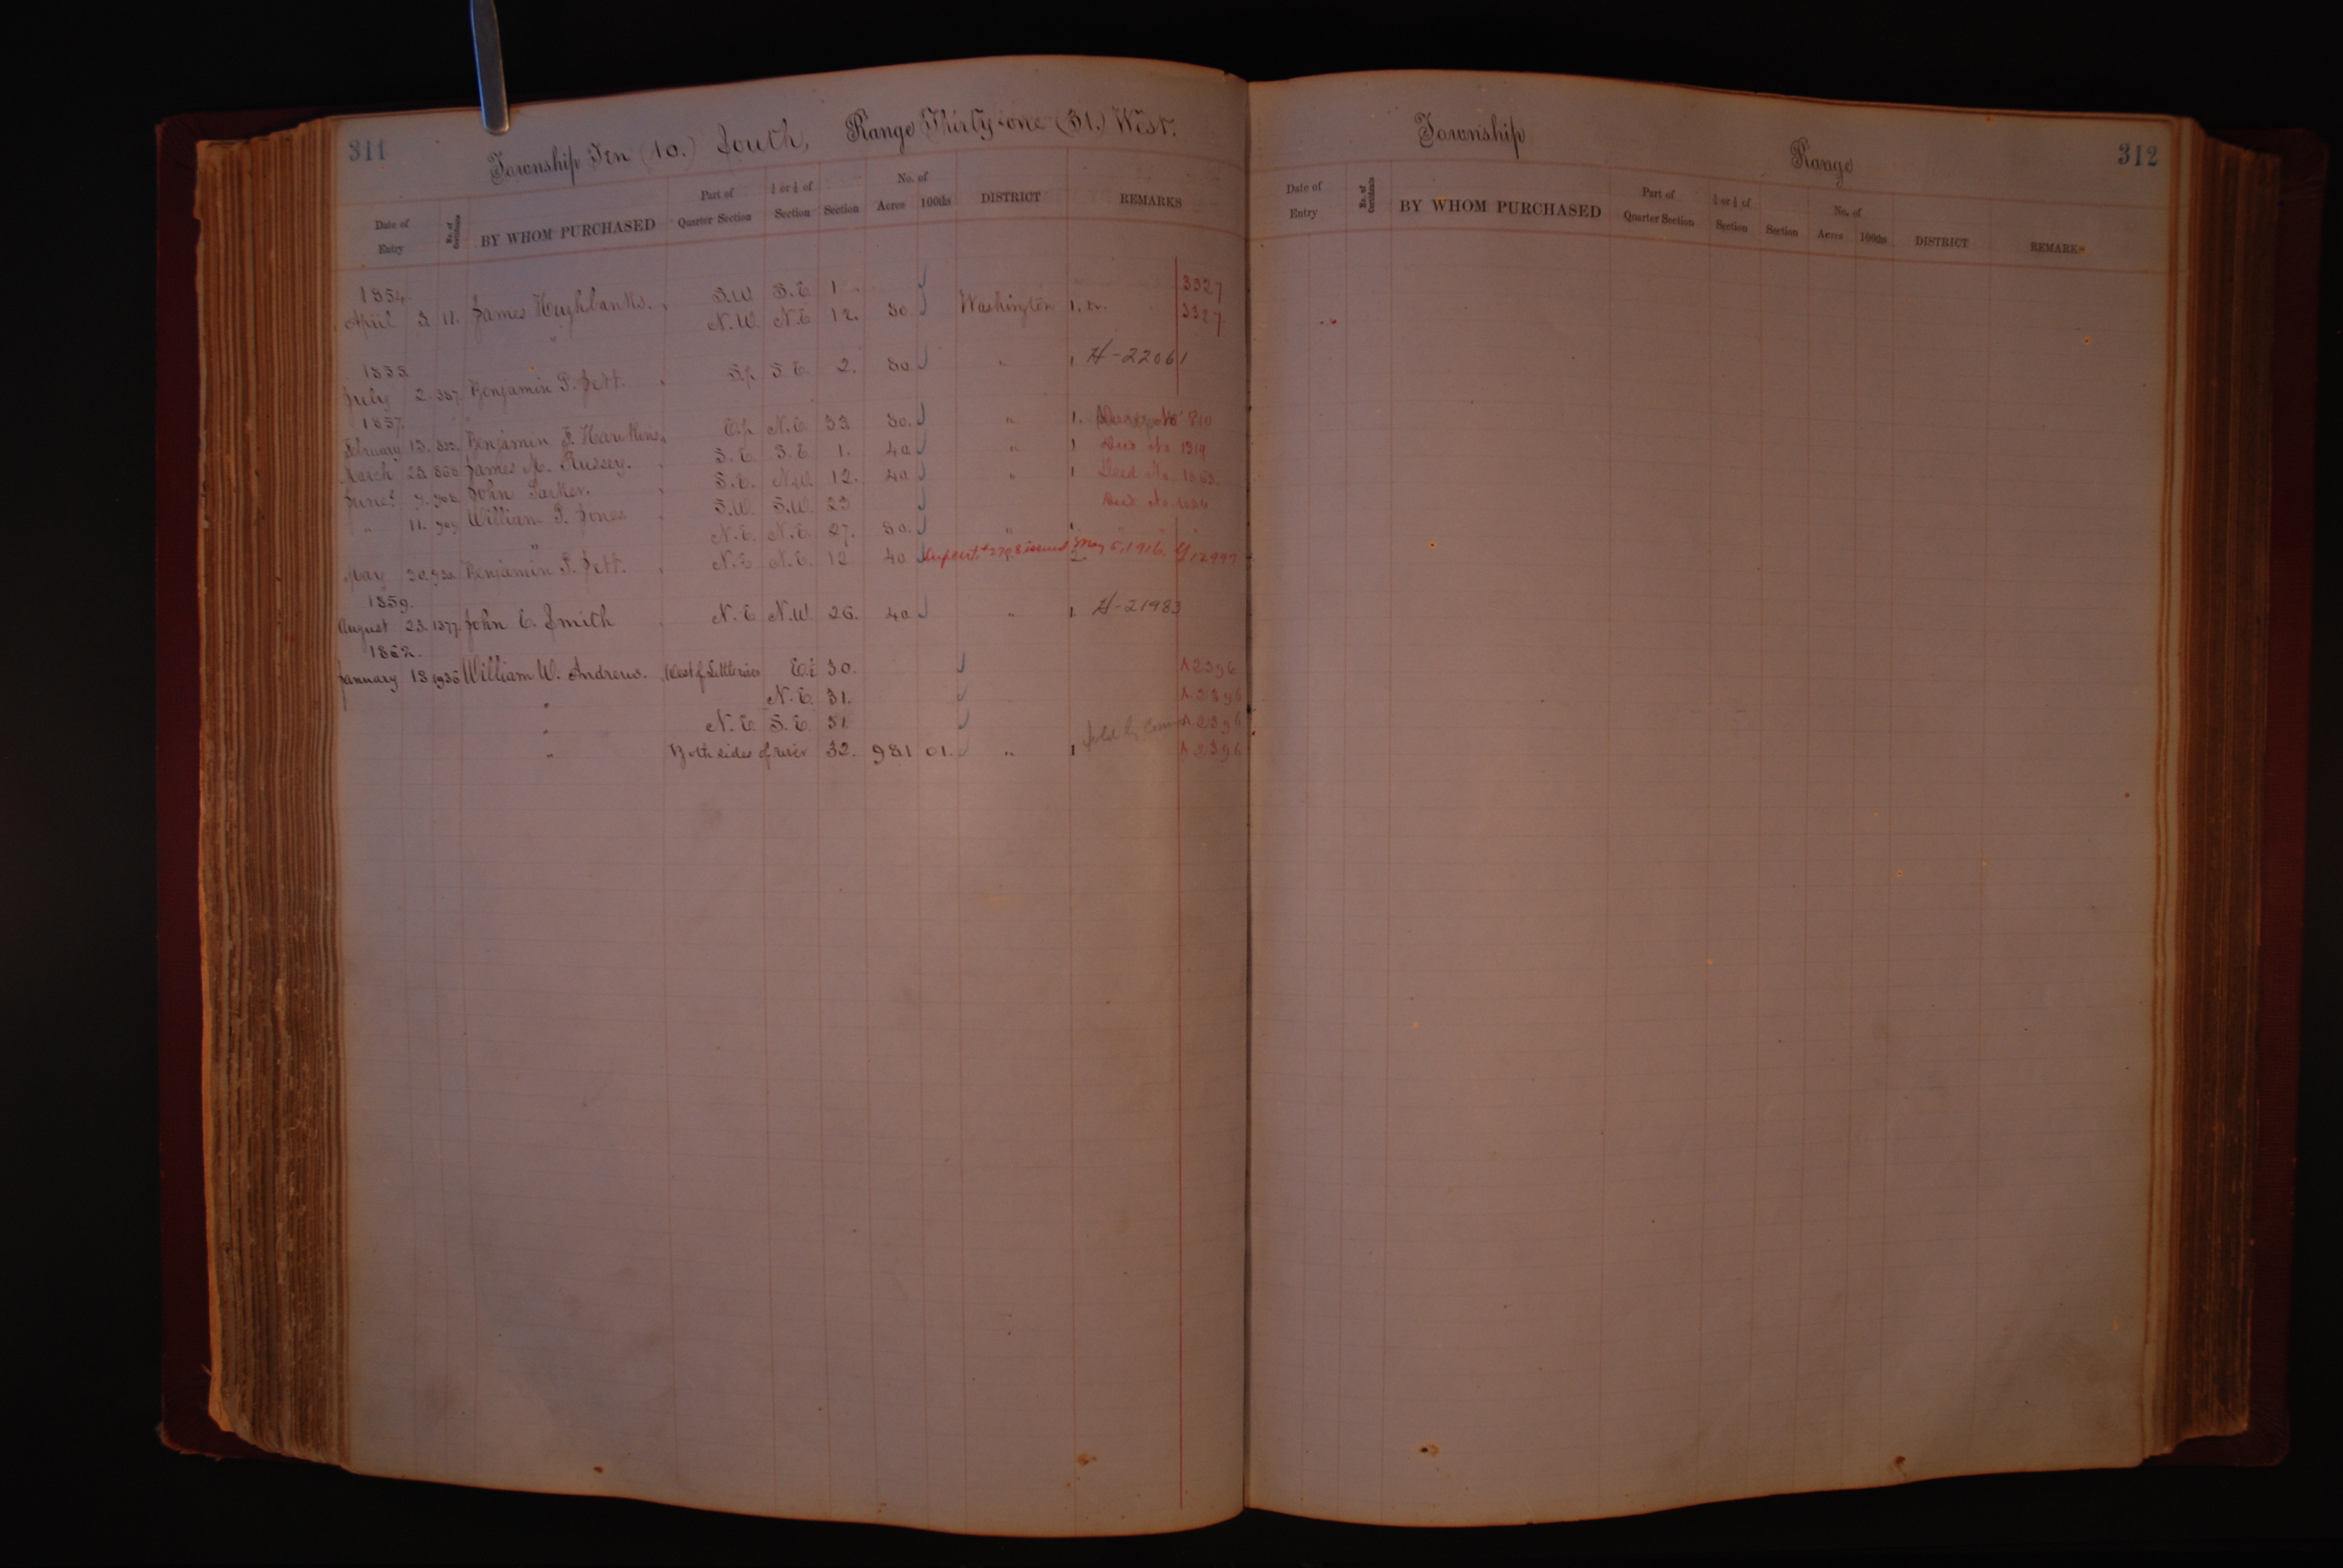 311
Township Ten (10.) South, Range Thirty-one (31.) West.
Date of Entry No. of Certificate BY WHOM PURCHASED Part of Quarter Section ½ or ¼ of Section Section No. of Acres 100ths DISTRICT REMARKS
1854.
April 3 11. James Houghbanks. S.W S.E 1 3327
N.W. N.E 12. 80 Washington 1. 3327
1855.
July 2. 387. Benjamin P. Jett. S.½ S.E. 2. 80 " 1 H-22061
1857.
February 13. Benjamin F. Hawkins E.½ N.E 33 80. " 1. No 810
March 23. James M. Russey. S.E. S.E 1. 40 " 1 Deed No 1319
June John Parker. S.E. N.W. 12. 40 " 1 Deed No.
" 11. William P. Jones S.W. S.W. 23 Deed No.
" N.E. N.E. 27. 80. "
May 30. Benjamin P. Jett. N.E N.E. 12 40 issued May 5, 1916. 12997
1859.
August 23. 1377. John E. Smith N.E N.W. 26. 40 " 1 H-21983
1862.
January 18 1936 William W. Andrews. West of Little river E.½ 30. A 2396
" N.E. 31. A 2396
" N.E S.E. 31 A 2396
" Both sides of river 32. 981 01. " 1 Sold by A 2396
Township Range 312
Date of Entry No. of Certificate BY WHOM PURCHASED Part of Quarter Section ½ or ¼ of Section Section No. of Acres 100ths DISTRICT REMARKS